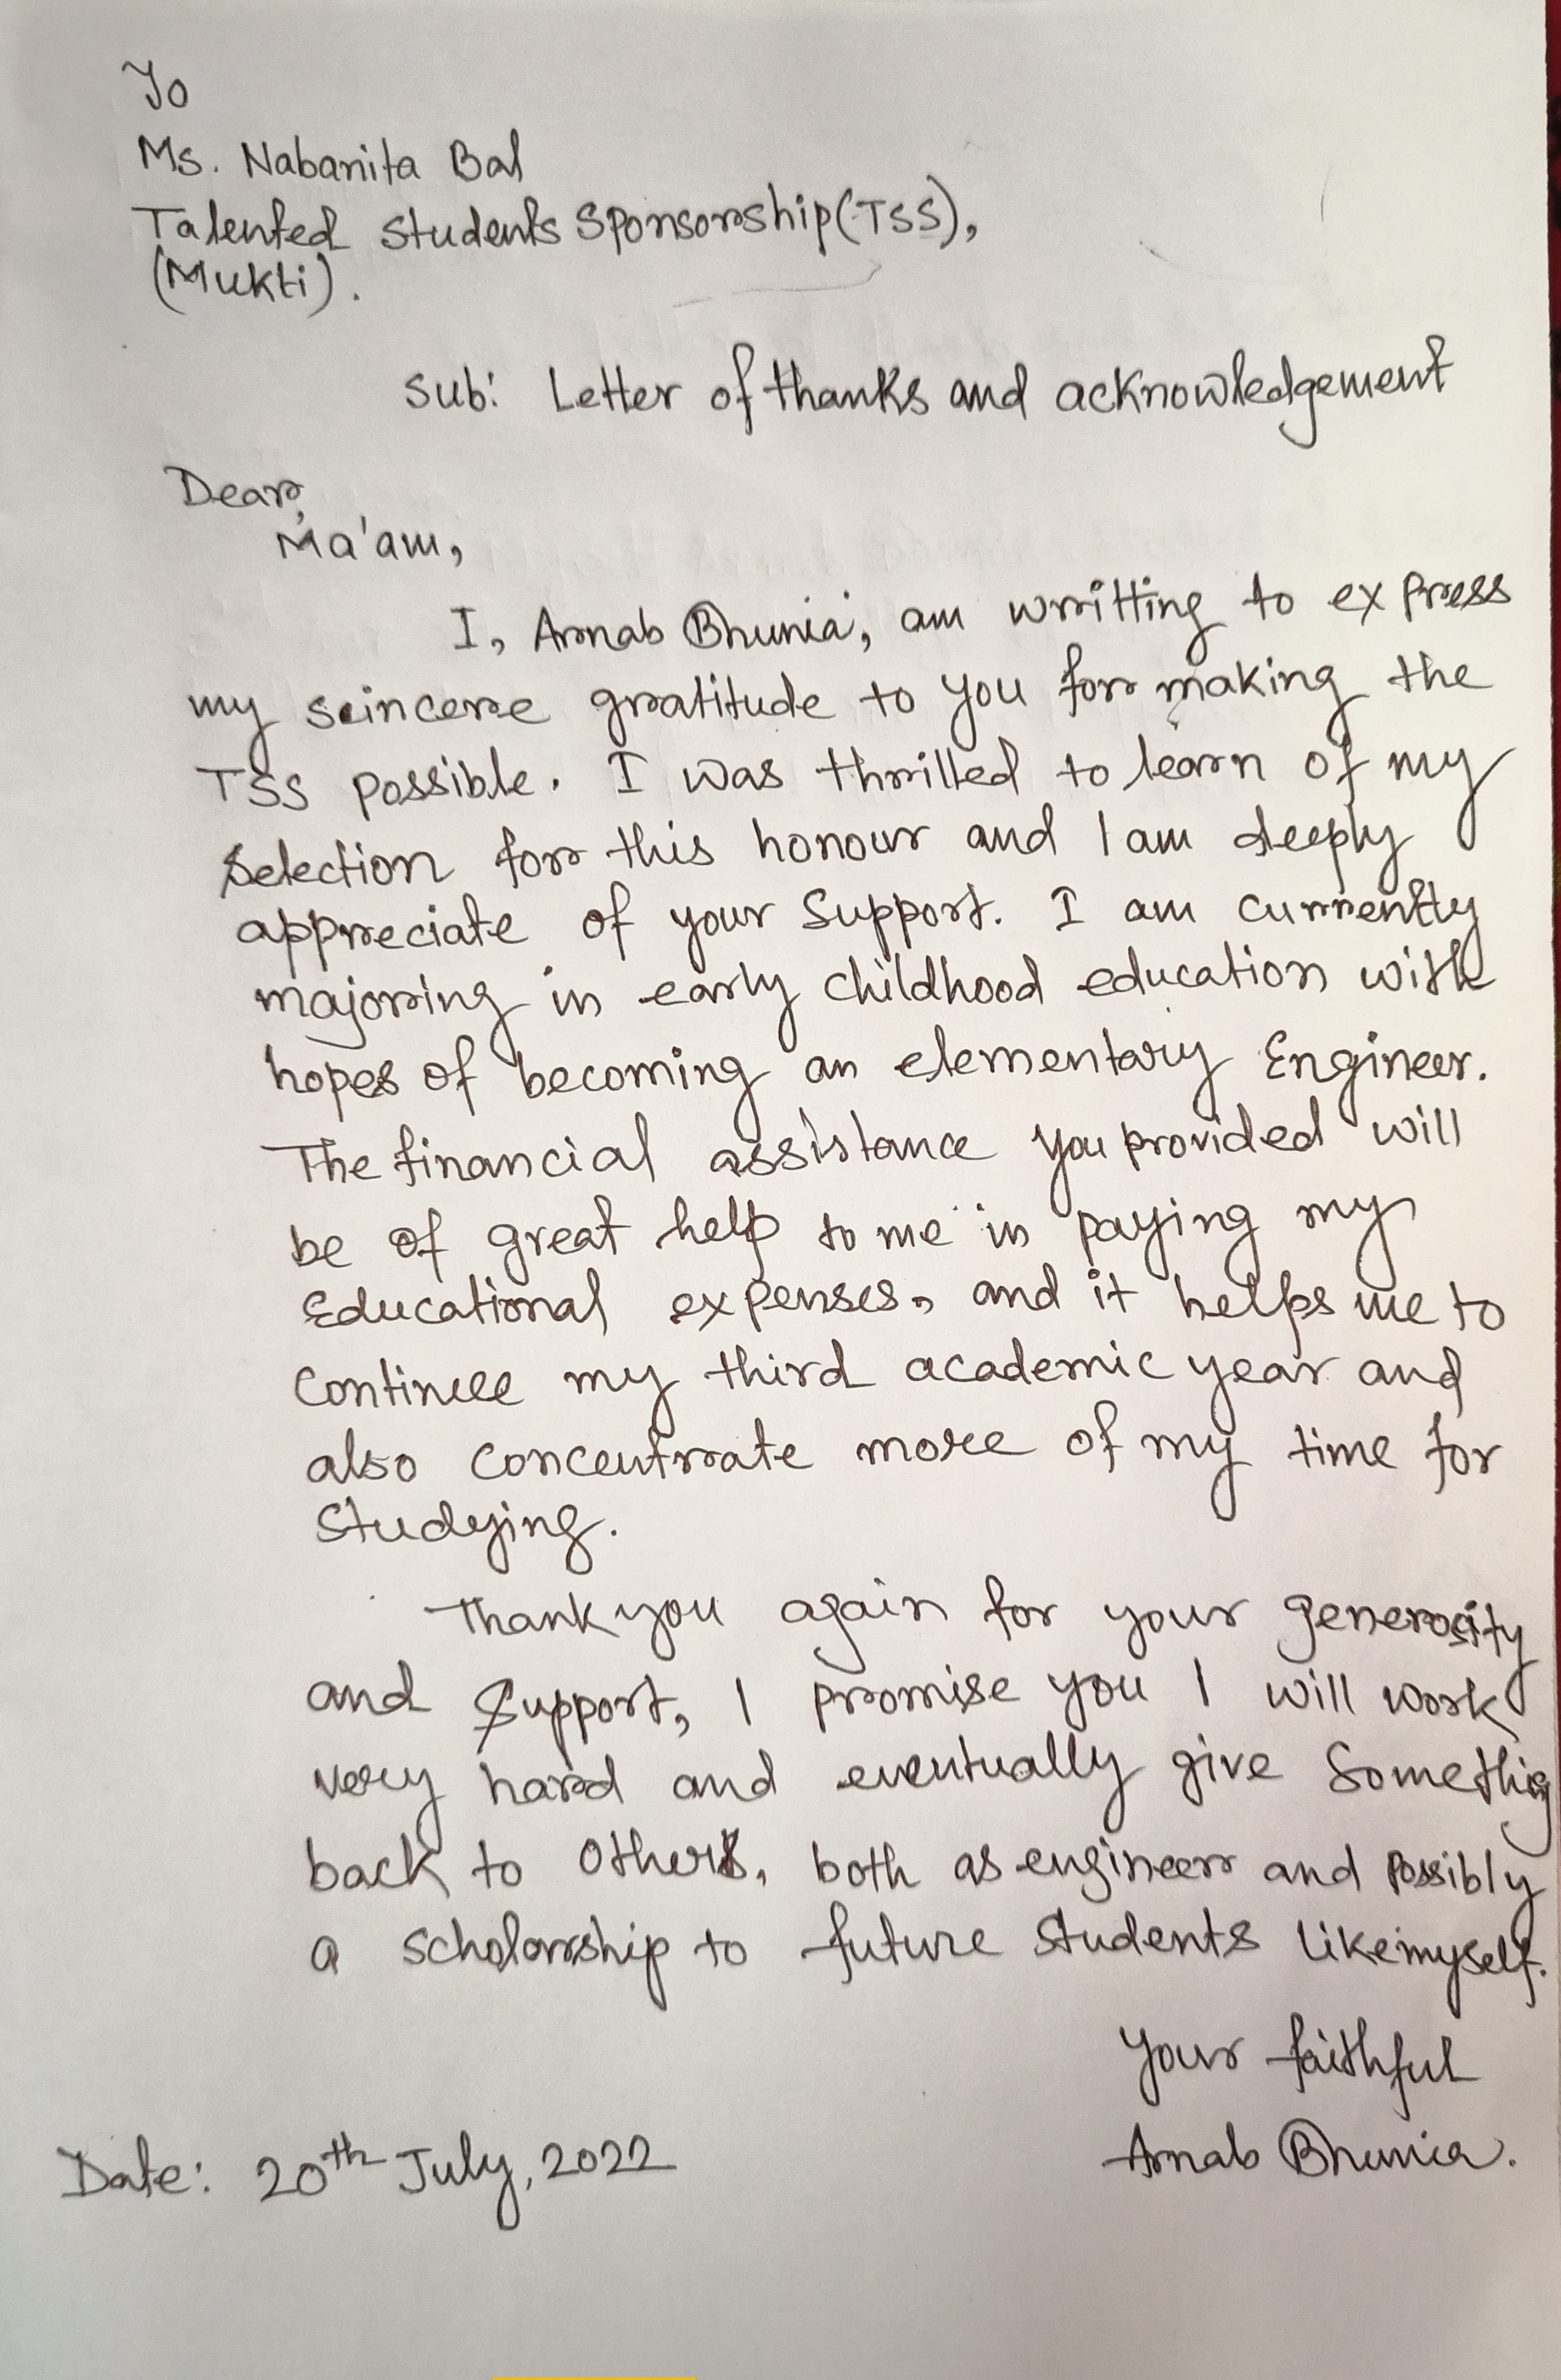 To
Ms. Nabanita Bal
Talented Students Sponsorship (TSS),
(Mukti).
Sub: Letter of thanks and acknowledgement
Dear,
Ma'am,
I, Arnab Bhunia, am writting to express
my seincere gratitude to you for making the
TSS possible. I was thrilled to learn of my
selection for this honour and I am deeply
appreciate of your Support. I am currently
majoring in early childhood education with
hopes of becoming an elementary Engineer.
The financial assistance you provided will
be of great help to me in paying my
Educational expenses, and it helps me to
continue my third academic year and
also concentrate more of my time for
studying.
Thank you again for your generosity
and support, I promise you I will work
very hard and eventually give Somethig
back to others, both as engineer and possibly
a scholarship to future students like myself.
Your faithful
Arnab Bhunia.
Date: 20th July, 2022